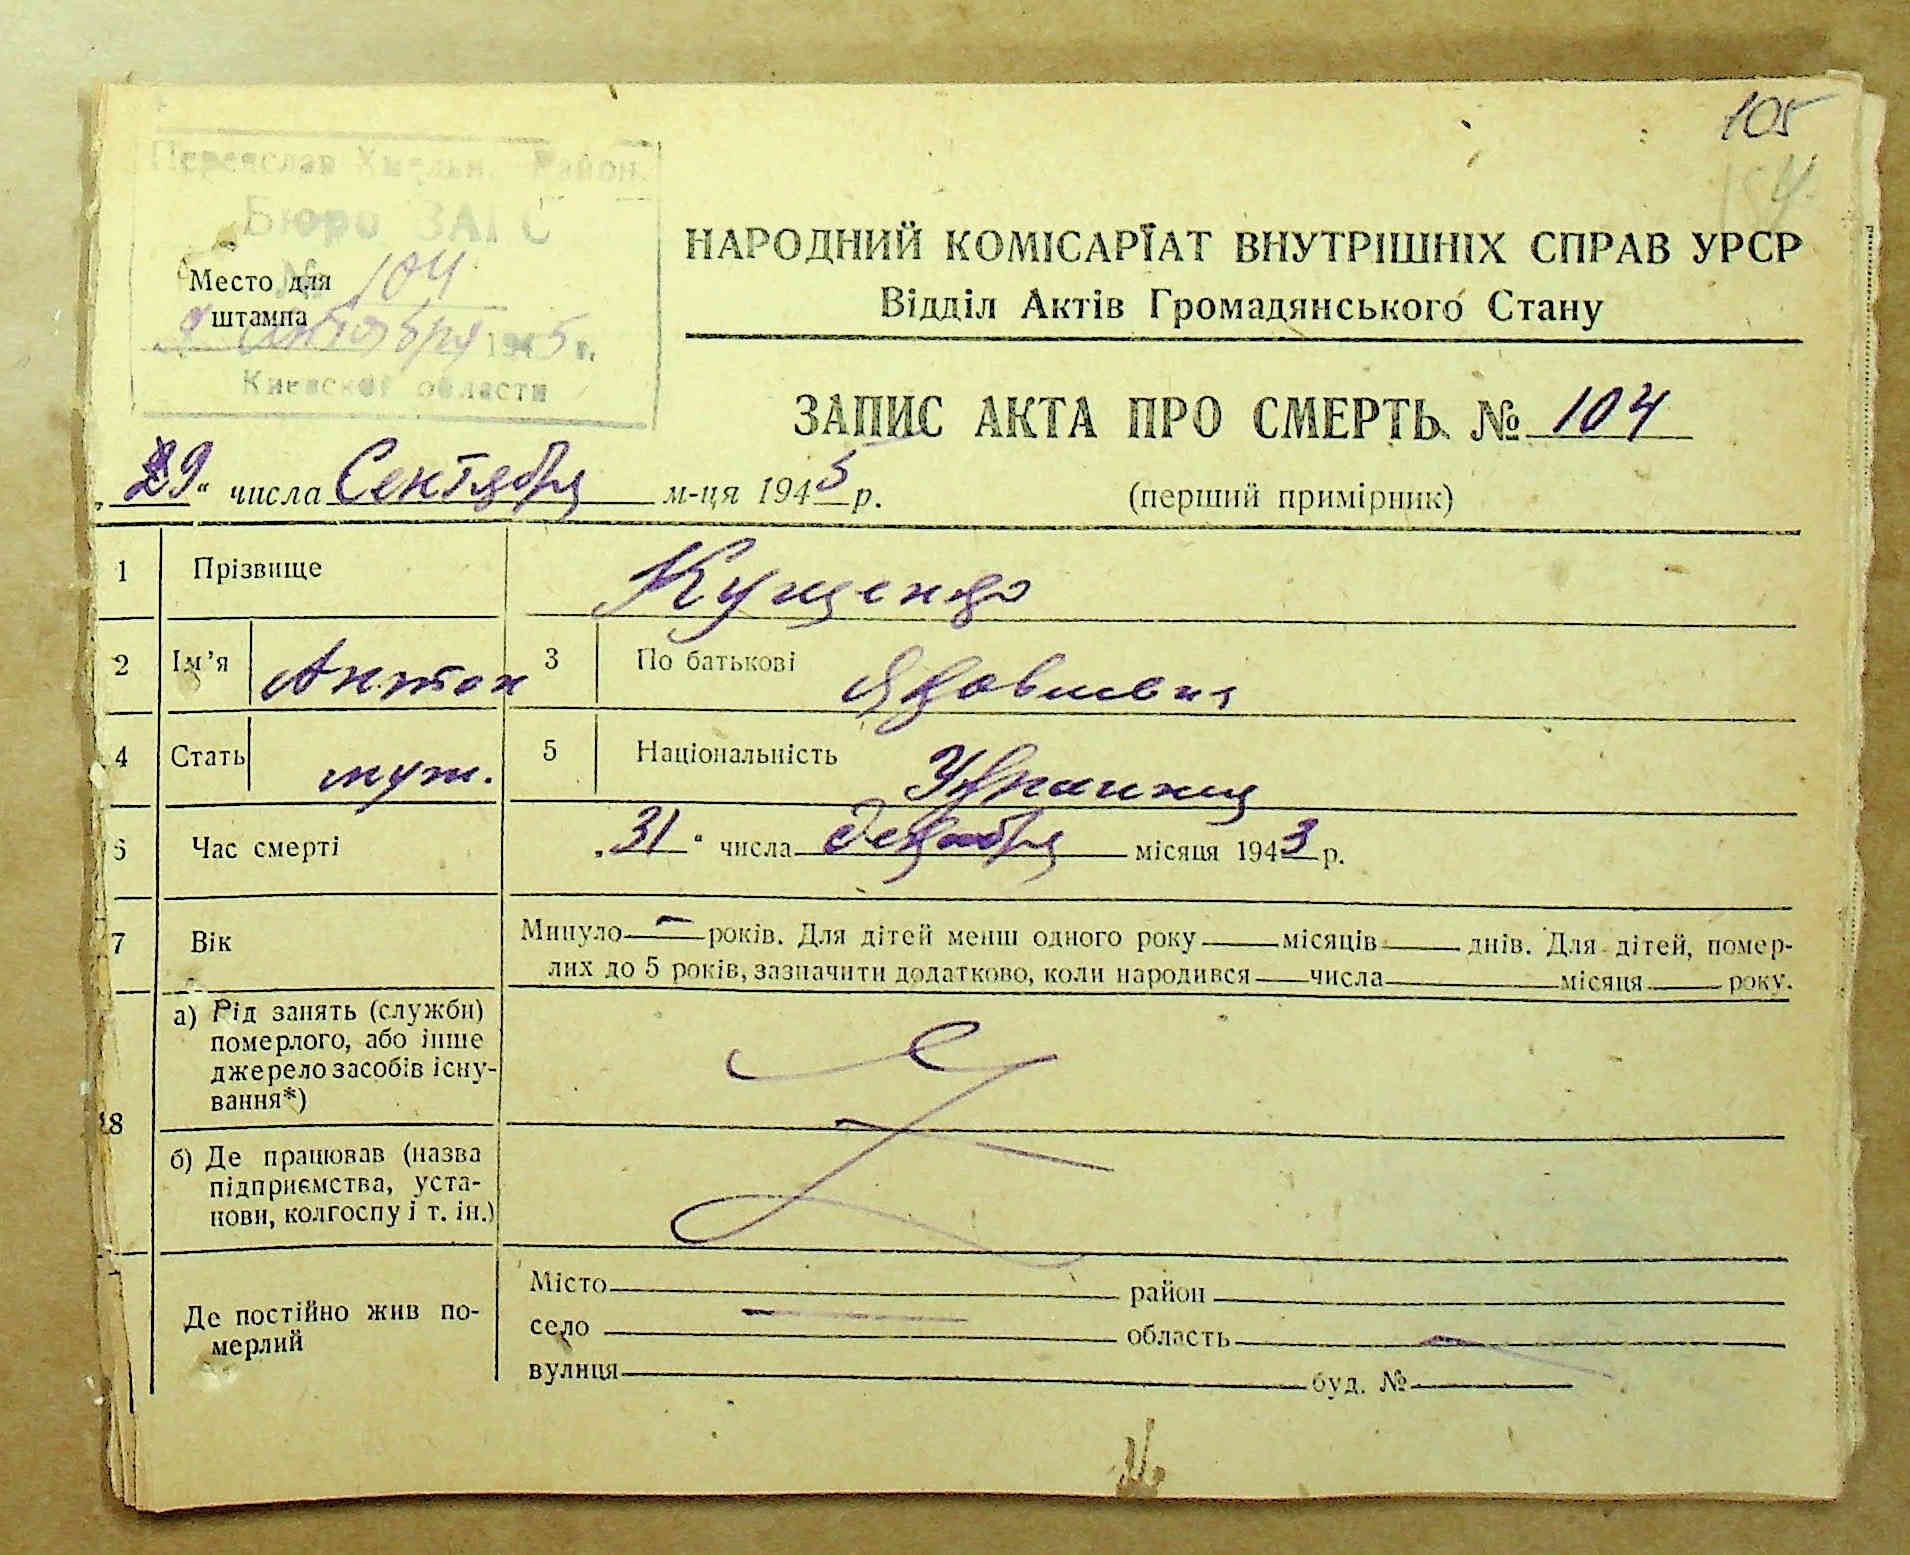 105
154
Переяслав Хмельн. Район.
Бюро ЗАГС
№ 104
Место для
штампа
9 октября 1945 г.
Киевской области
НАРОДНИЙ КОМІСАРІАТ ВНУТРІШНІХ СПРАВ УРСР
Відділ Актів Громадянського Стану
ЗАПИС АКТА ПРО СМЕРТЬ № 104
„29“ числа Сентября м-ця 1945 р. (перший примірник)
1 Прізвище Кущенко
2 Ім’я Антон 3 По батькові Яковлевич
4 Стать муж. 5 Національність Украинец
6 Час смерті „31“ числа декабря місяця 1943 р.
7 Вік Минуло — років. Для дітей менш одного року ——— місяців ——— днів. Для дітей, помер-
лих до 5 років, зазначити додатково, коли народився —— числа ——— місяця ——— року.
8 а) Рід занять (служби)
померлого, або інше
джерело засобів існу-
вання*)
б) Де працював (назва
підприємства, уста-
нови, колгоспу і т. ін.)
Де постійно жив по-
мерлий
Місто район
село область
вулиця буд. №